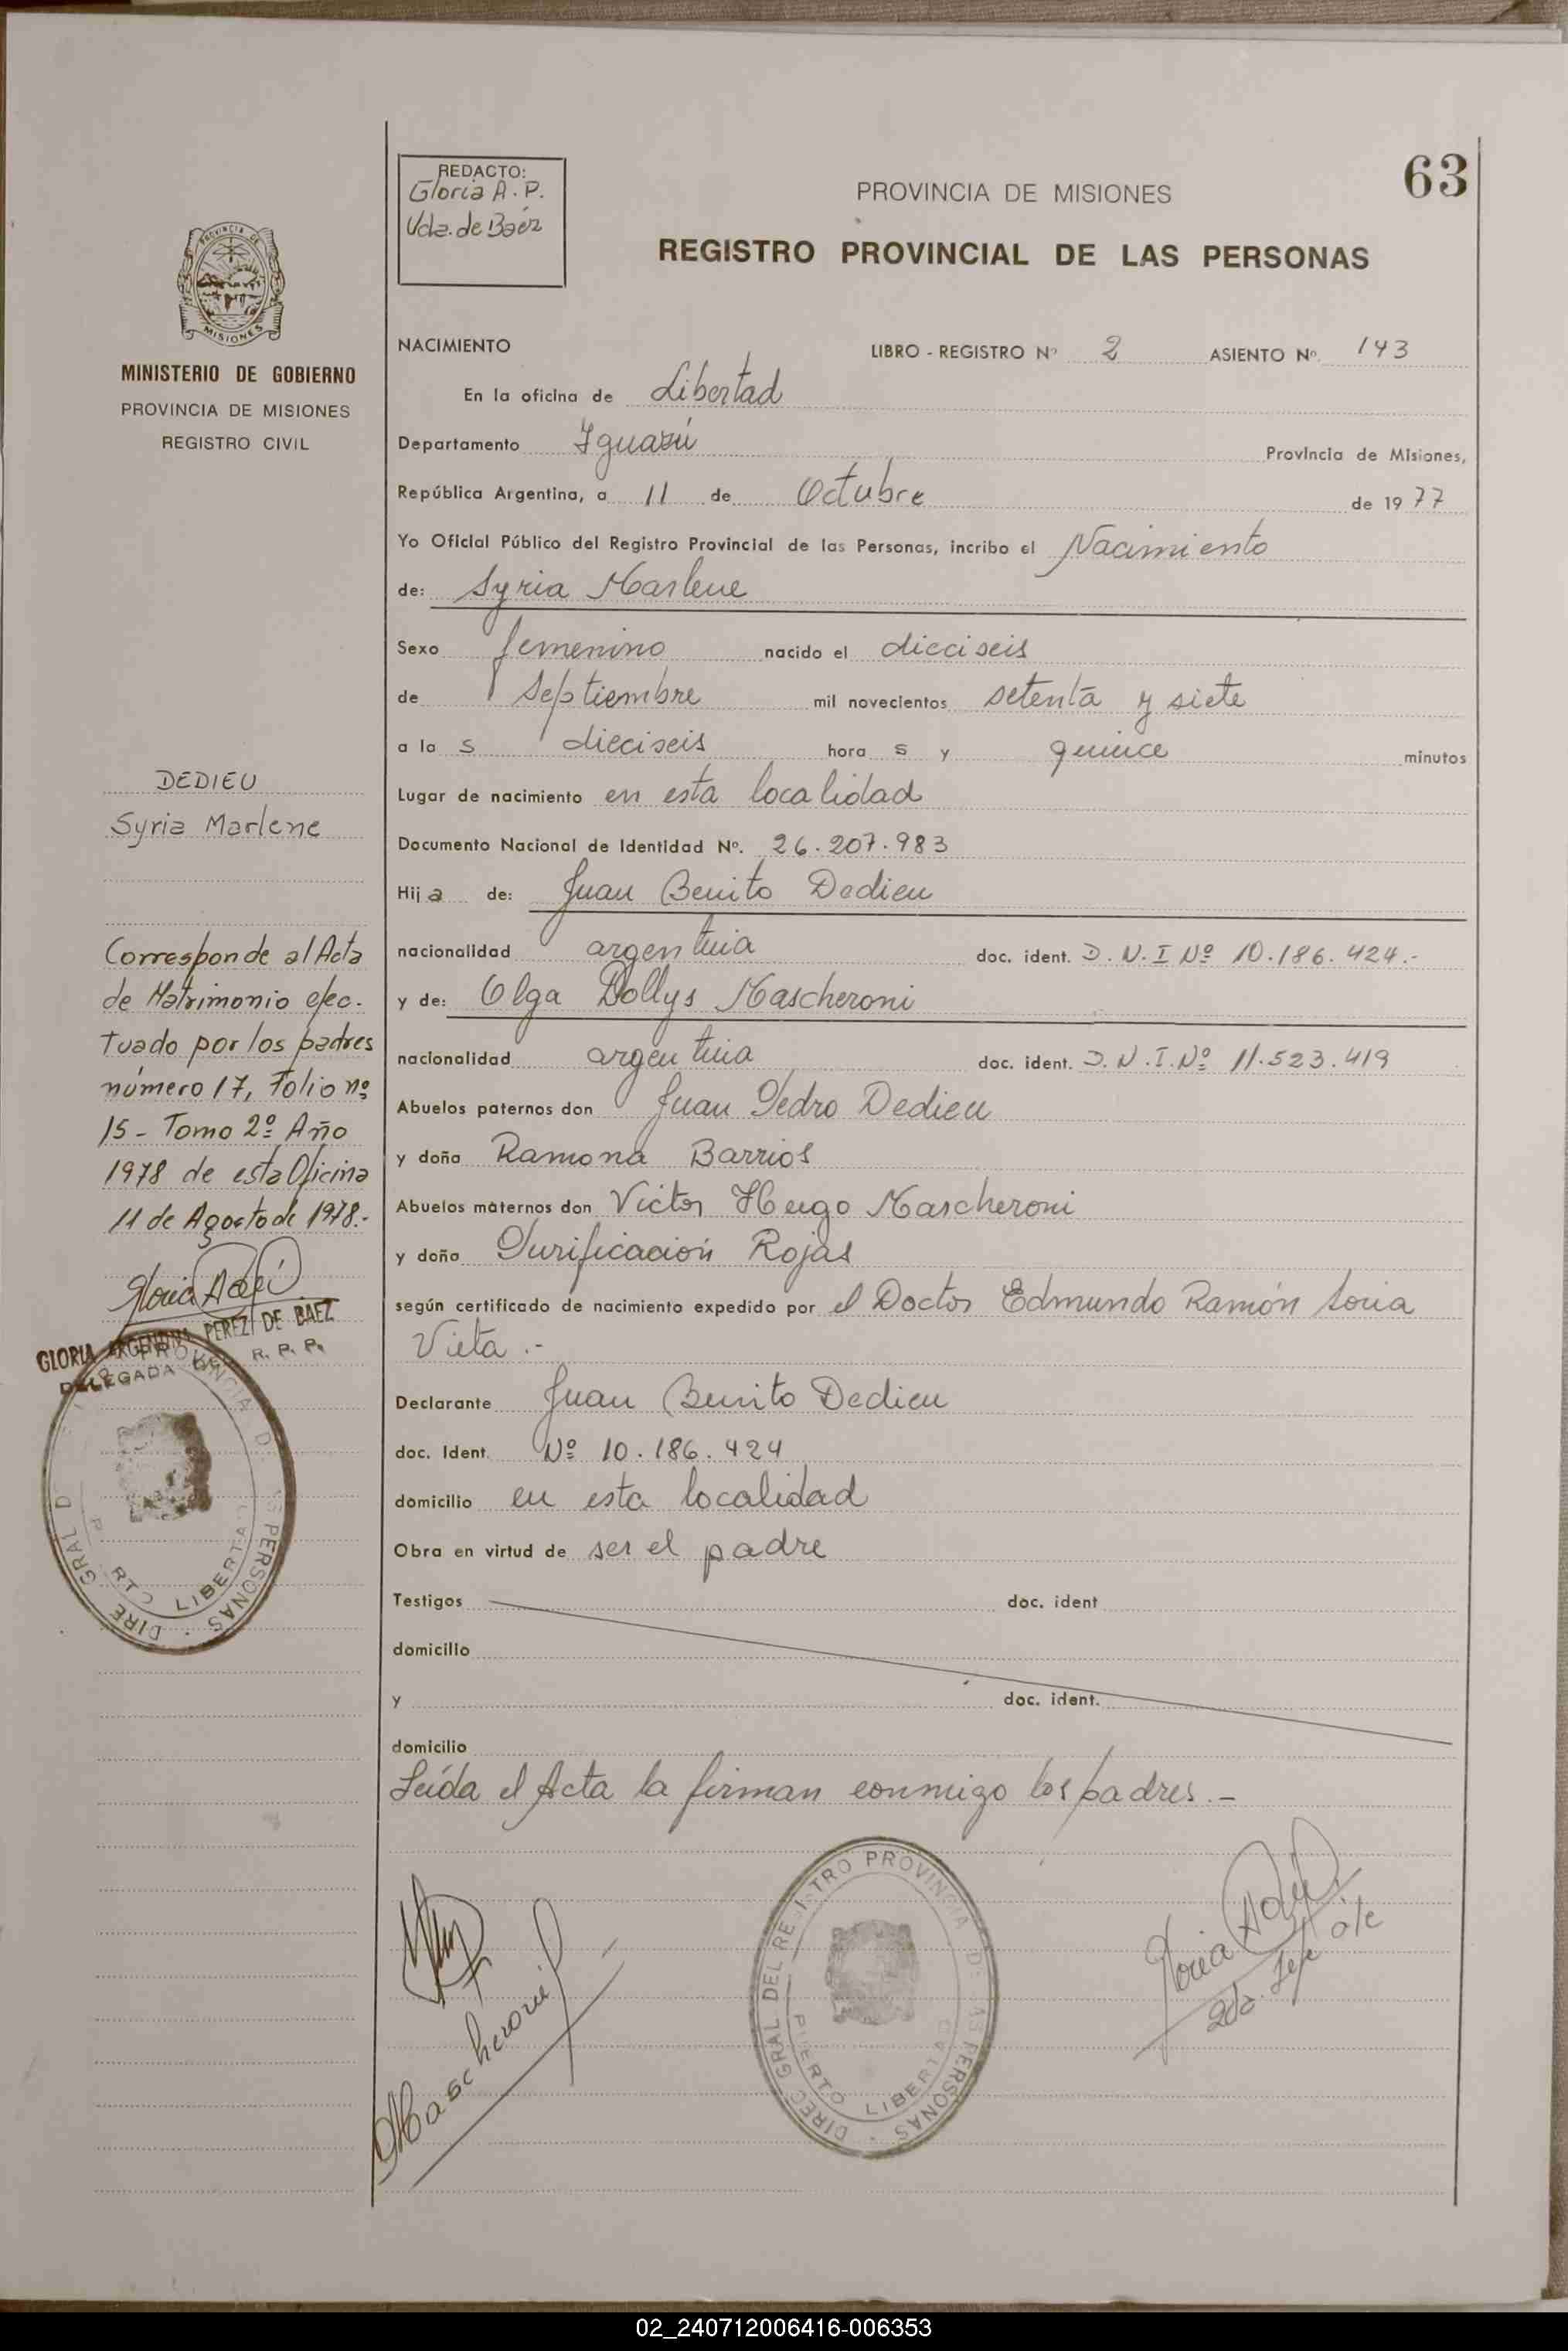 63
REDACTO:
Gloria A. P.
Vda. de Baéz
PROVINCIA DE MISIONES
REGISTRO PROVINCIAL DE LAS PERSONAS
MISIONES
MINISTERIO DE GOBIERNO
PROVINCIA DE MISIONES
REGISTRO CIVIL
NACIMIENTO LIBRO - REGISTRO Nº 2 ASIENTO Nº. 143
En la oficina de Libertad
Departamento Iguazú Provincia de Misiones,
República Argentina, a 11 de Octubre de 1977
Yo Oficial Público del Registro Provincial de las Personas, incribo el Nacimiento
de: Syria Marlene
Sexo femenino nacido el dieciseis
de Septiembre mil novecientos setenta y siete
a la s dieciseis hora s y quince minutos
Lugar de nacimiento en esta localidad
Documento Nacional de Identidad Nº. 26.207.983
Hij a de: Juan Benito Dedieu
nacionalidad argentina doc. ident. D.N.I Nº 10.186.424.-
y de: Olga Dollys Mascheroni
nacionalidad argentina doc. ident. D.N.I.Nº 11.523.419
Abuelos paternos don Juan Pedro Dedieu
y doña Ramona Barrios
Abuelos maternos don Victor Hugo Mascheroni
y doña Purificación Rojas
según certificado de nacimiento expedido por el Doctor Edmundo Ramón Soria
Vieta .-
Declarante Juan Benito Dedieu
doc. Ident. Nº 10.186.424
domicilio en esta localidad
Obra en virtud de ser el padre
Testigos doc. ident
domicilio
y doc. ident.
domicilio
Leída el Acta la firman conmigo los padres.-
DEDIEU
Syria Marlene
Corresponde al Acta
de Matrimonio efec.
tuado por los padres
número 17, Folio nº
15 - Tomo 2º Año
1978 de esta Oficina
11 de Agosto de 1978.-
GLORIA ARGENTINA PEREZ DE BAEZ
DELEGADA R. P. P.
DIREC GRAL DEL REGISTRO PROVINCIAL DE LAS PERSONAS
PUERTO LIBERTAD
OMascheroni
Gloria
2da. Jefe a/c
02_240712006416-006353